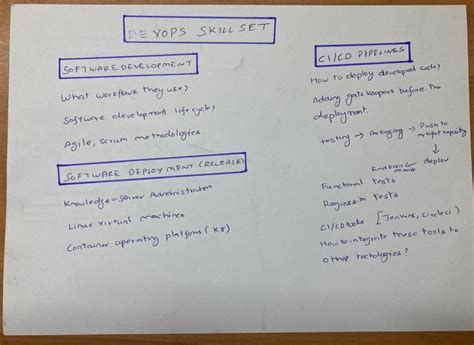 DEVOPS SKILL SET
SOFTWARE DEVELOPMENT
What workflows they use?
Software development lifecycle?
Agile, scrum methodologies
SOFTWARE DEPLOYMENT (RELEASE)
Knowledge server Administration
Linux virtual machines
Container operating platforms (K8)
CI/CD PIPELINES
How to deploy developed code?
Adding gatekeepers before the
deployment.
testing → Packaging → Push to
artifact repository
↓
deploy
Functional tests
Regression tests
CI/CD tools [Jenkins, Circleci]
How to integrate these tools to
other technologies?